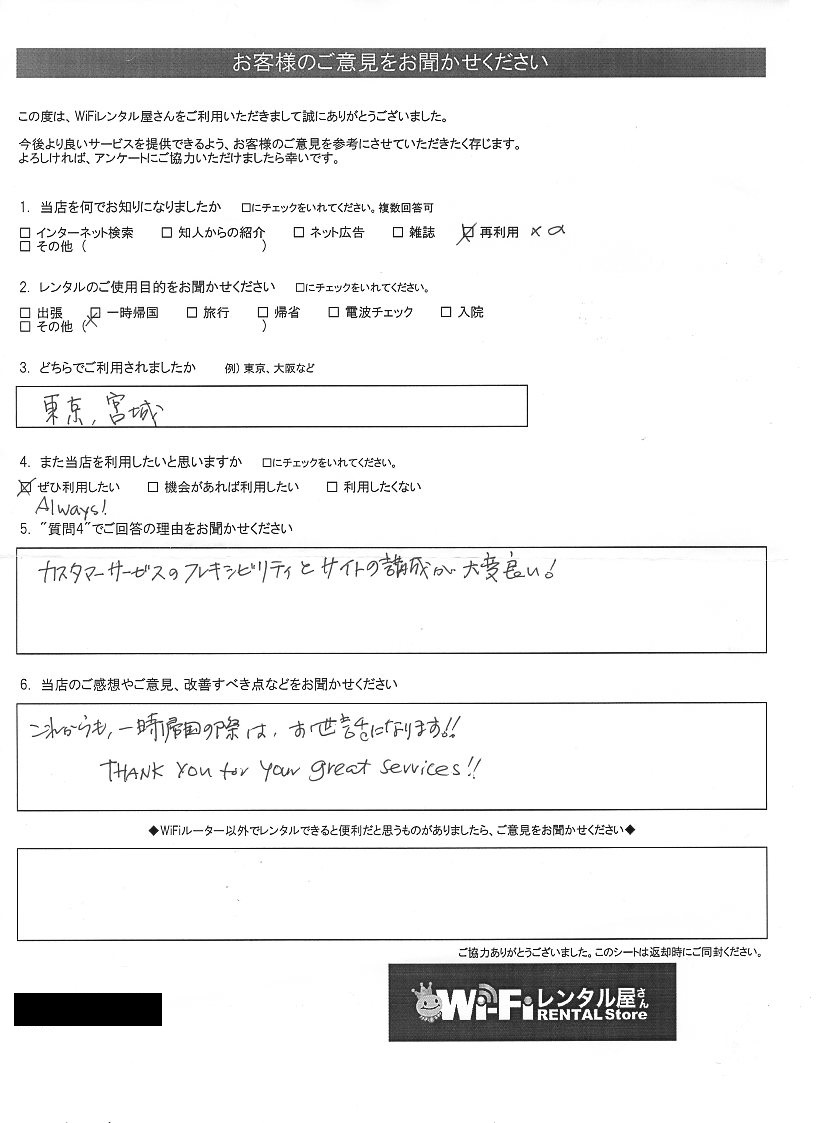 お客様のご意見をお聞かせください
この度は、WiFiレンタル屋さんをご利用いただきまして誠にありがとうございました。
今後より良いサービスを提供できるよう、お客様のご意見を参考にさせていただきたく存じます。
よろしければ、アンケートにご協力いただけましたら幸いです。
1. 当店を何でお知りになりましたか □にチェックをいれてください。複数回答可
□ インターネット検索 □ 知人からの紹介 □ ネット広告 □ 雑誌 ☒ 再利用 ×α
□ その他 ( )
2. レンタルのご使用目的をお聞かせください □にチェックをいれてください。
□ 出張 ☒ 一時帰国 □ 旅行 □ 帰省 □ 電波チェック □ 入院
□ その他 ( )
3. どちらでご利用されましたか 例) 東京、大阪など
東京、宮城
4. また当店を利用したいと思いますか □にチェックをいれてください。
☒ ぜひ利用したい □ 機会があれば利用したい □ 利用したくない
Always!
5. "質問4"でご回答の理由をお聞かせください
カスタマーサービスのフレキシビリティとサイトの構成が大変良い!
6. 当店のご感想やご意見、改善すべき点などをお聞かせください
これからも、一時帰国の際は、お世話になります!!
THANK You for Your great services!!
◆WiFiルーター以外でレンタルできると便利だと思うものがありましたら、ご意見をお聞かせください◆
ご協力ありがとうございました。このシートは返却時にご同封ください。
Wi-Fi レンタル屋さん
RENTAL Store